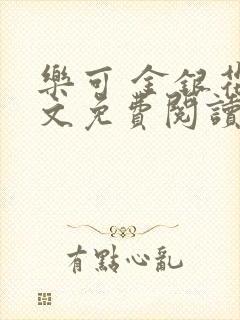 樂可 金銀花
文免費閱讀
有點心亂